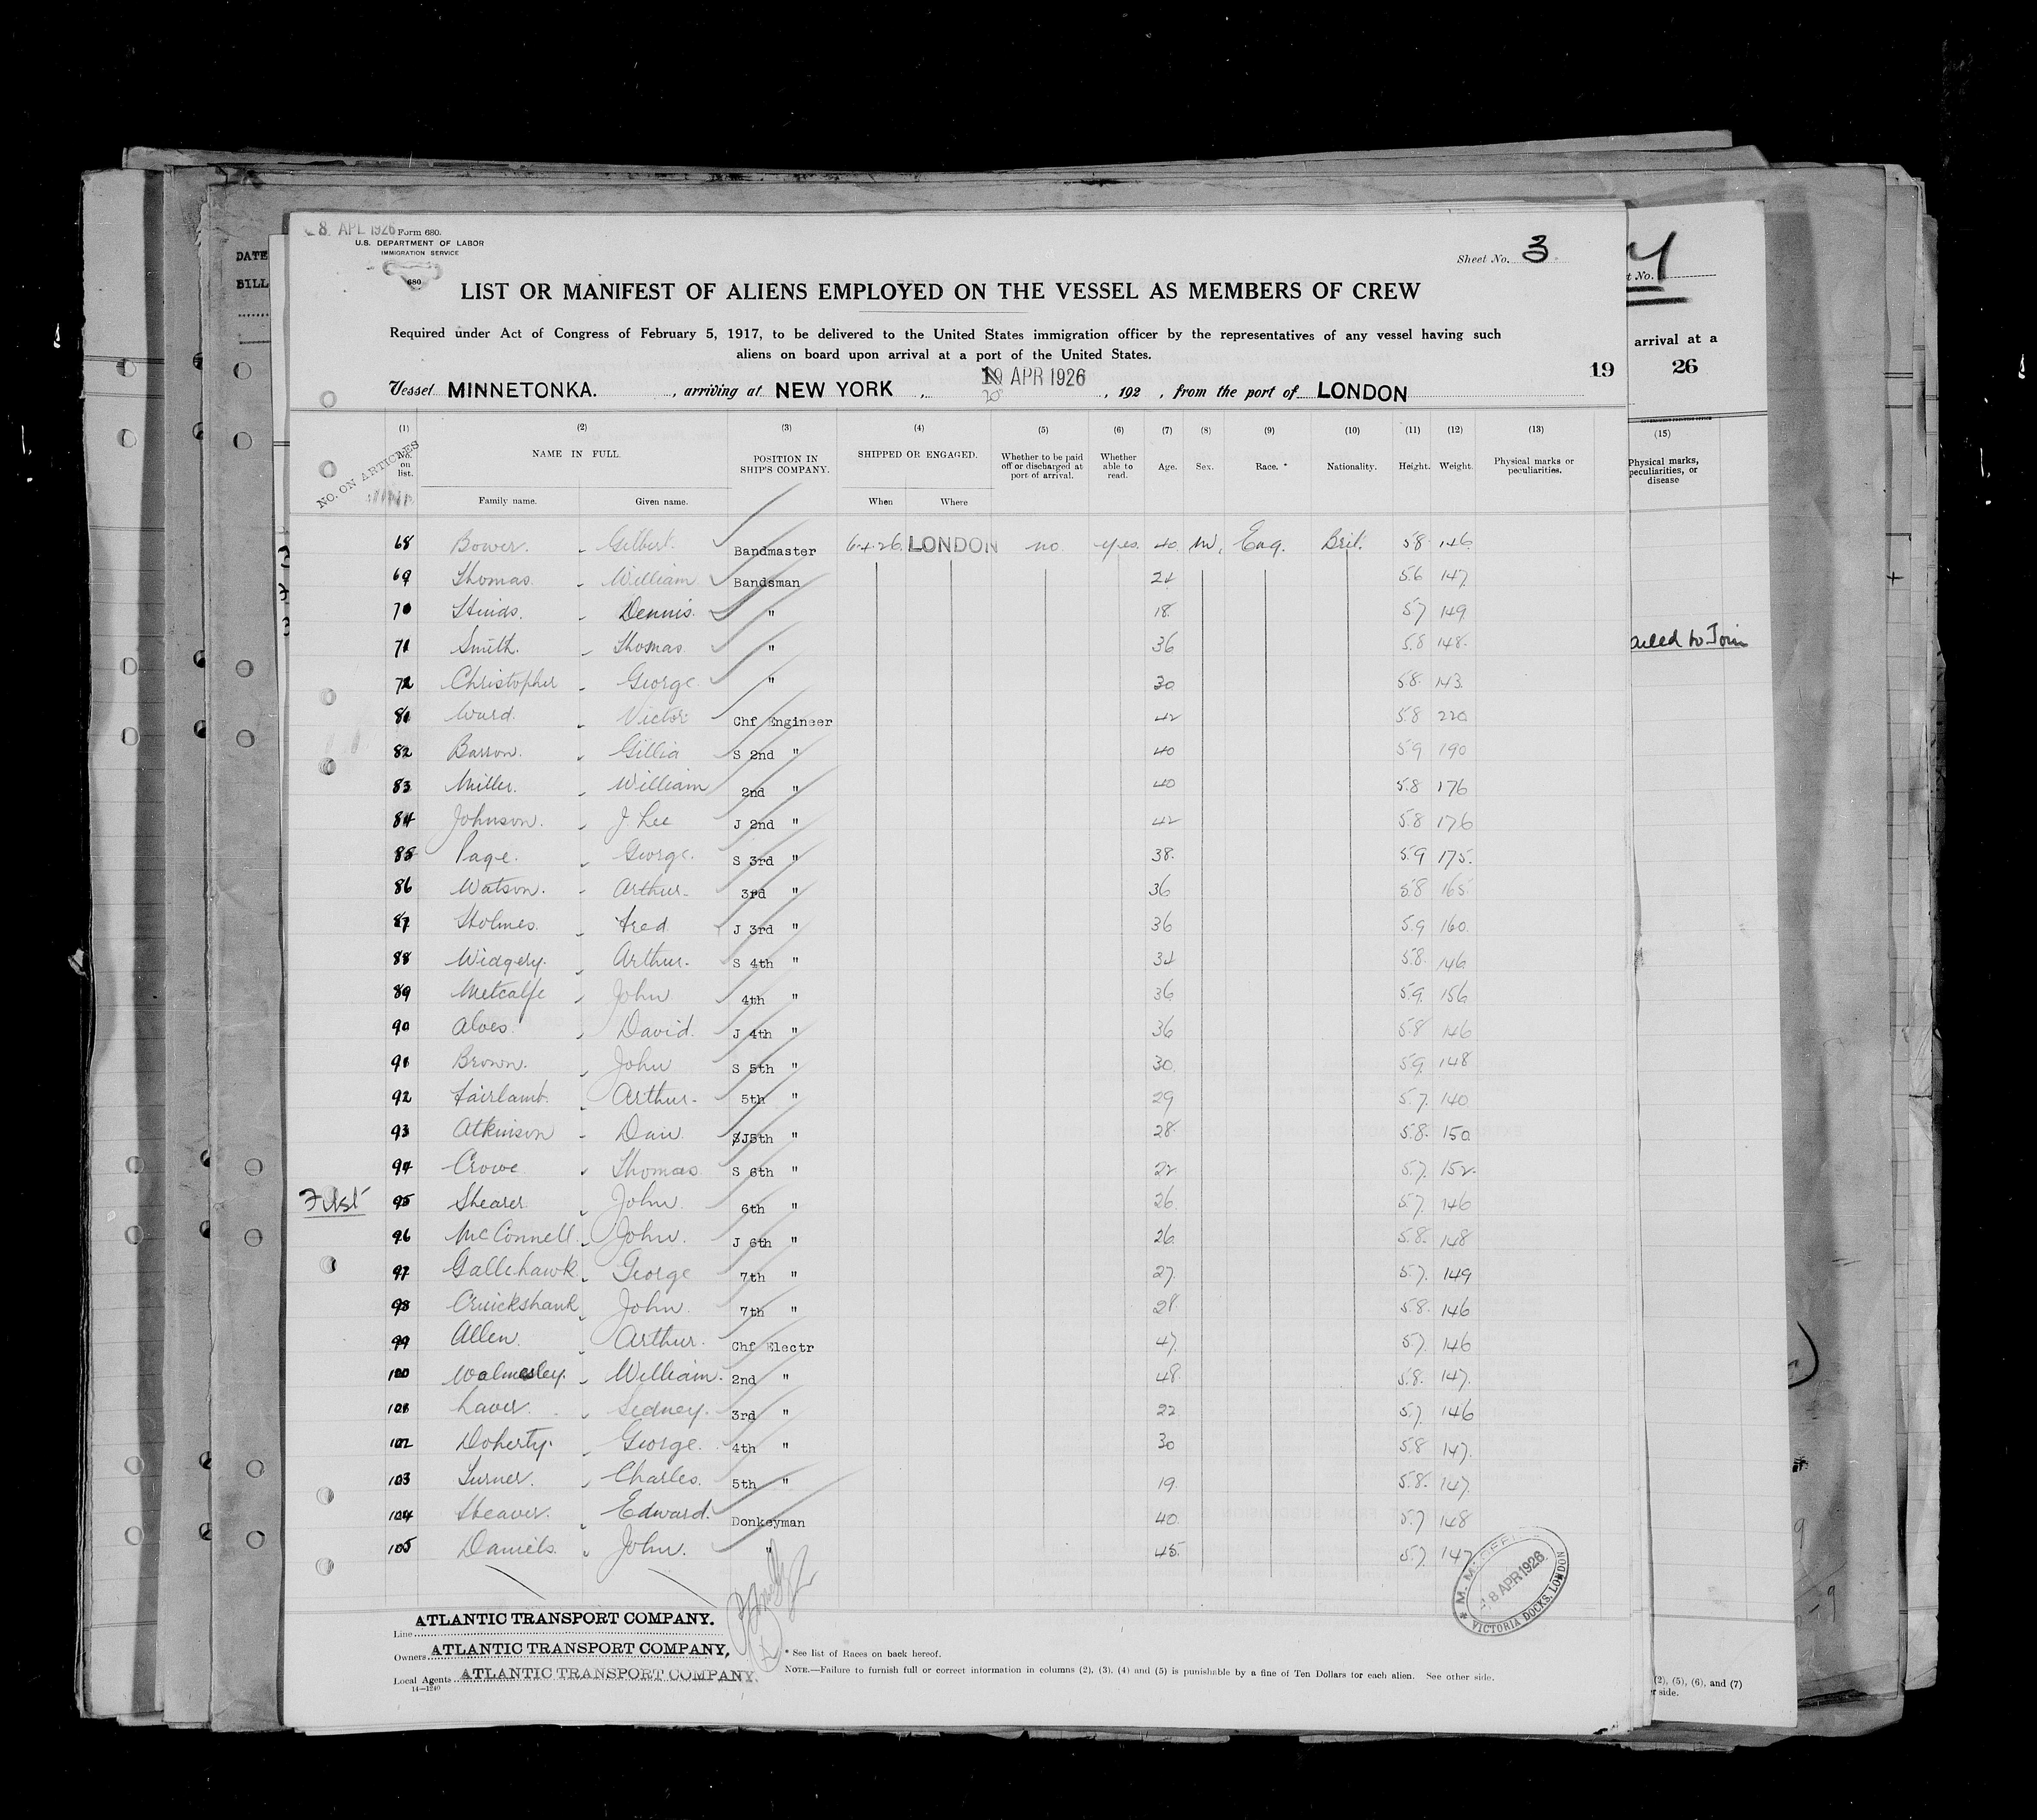 8 APL 1926 Form 680.
U.S. DEPARTMENT OF LABOR
IMMIGRATION SERVICE
680
Sheet No. 3
LIST OR MANIFEST OF ALIENS EMPLOYED ON THE VESSEL AS MEMBERS OF CREW
Required under Act of Congress of February 5, 1917, to be delivered to the United States immigration officer by the representatives of any vessel having such
aliens on board upon arrival at a port of the United States.
Vessel MINNETONKA. , arriving at NEW YORK , APR 1926 , 192 , from the port of LONDON
19
NO. ON ARTICLES
(1) (2) (3) (4) (5) (6) (7) (8) (9) (10) (11) (12) (13)
No. on list. NAME IN FULL. POSITION IN SHIP'S COMPANY. SHIPPED OR ENGAGED. Whether to be paid off or discharged at port of arrival. Whether able to read. Age. Sex. Race. * Nationality. Height. Weight. Physical marks or peculiarities.
Family name. Given name. When Where
68 Bower. Gilbert. Bandmaster 6.4.26. LONDON no. yes. 40. M. Eng. Brit. 5.8 146
69 Thomas. William Bandsman 24 5.6 147
70 Hinds. Dennis. " 18. 5.7 149
71 Smith. Thomas. " 36 5.8 148.
72 Christopher George. " 30 5.8. 143
81 Ward. Victor Chf Engineer 42 5.8 220
82 Barron. Gillia S 2nd " 40 5.9 190
83 Miller. William 2nd " 40 5.8 176
84 Johnson. J Lee J 2nd " 42 5.8 176
85 Page. George. S 3rd " 38. 5.9 175.
86 Watson. Arthur. 3rd " 36 5.8 165
87 Holmes. Fred J 3rd " 36 5.9 160.
88 Widgery. Arthur. S 4th " 34 5.8. 146
89 Metcalfe John 4th " 36 5.9. 156
90 Alves. David. J 4th " 36 5.8 146
91 Brown. John S 5th " 30. 5.9. 148
92 Fairlamb. Arthur. 5th " 29 5.7. 140
93 Atkinson Dan J5th " 28. 5.8. 150
94 Crowe Thomas S 6th " 22 5.7. 152.
95 Shearer. John. 6th " 26. 5.7. 146
96 McConnell. John. J 6th " 26 5.8. 148
97 Gallehawk. George 7th " 27. 5.7. 149
98 Cruickshank John. 7th " 28 5.8. 146
99 Allen. Arthur. Chf Electr 47. 5.7. 146
100 Walmesley. William. 2nd " 48. 5.8. 147.
101 Laver. Sedney. 3rd " 22 5.7. 146
102 Doherty. George. 4th " 30 5.8 147.
103 Turner. Charles. 5th " 19. 5.8. 147.
104 Heaver. Edward. Donkeyman 40. 5.7 148
105 Daniels. John. " 45. 5.7. 147
Line ATLANTIC TRANSPORT COMPANY.
Owners ATLANTIC TRANSPORT COMPANY,
Local Agents ATLANTIC TRANSPORT COMPANY.
14—1240
* See list of Races on back hereof.
NOTE.—Failure to furnish full or correct information in columns (2), (3), (4) and (5) is punishable by a fine of Ten Dollars for each alien. See other side.
8 APR 1926
VICTORIA DOCKS, LONDON
DATE
BILL
t No.
arrival at a
26
(15)
Physical marks,
peculiarities, or
disease
to Join
(2), (5), (6), and (7)
r side.